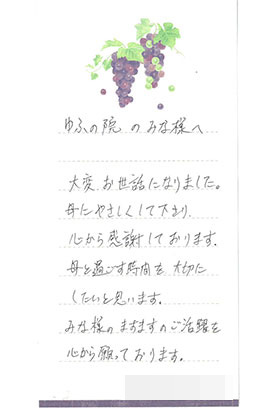 ゆふの院 の みな様へ
大変 お世話になりました。
母にやさしくして下さり、
心から感謝しております。
母と過ごす時間を 大切に
したいと思います。
みな様の ますますの ご活躍を
心から願っております。